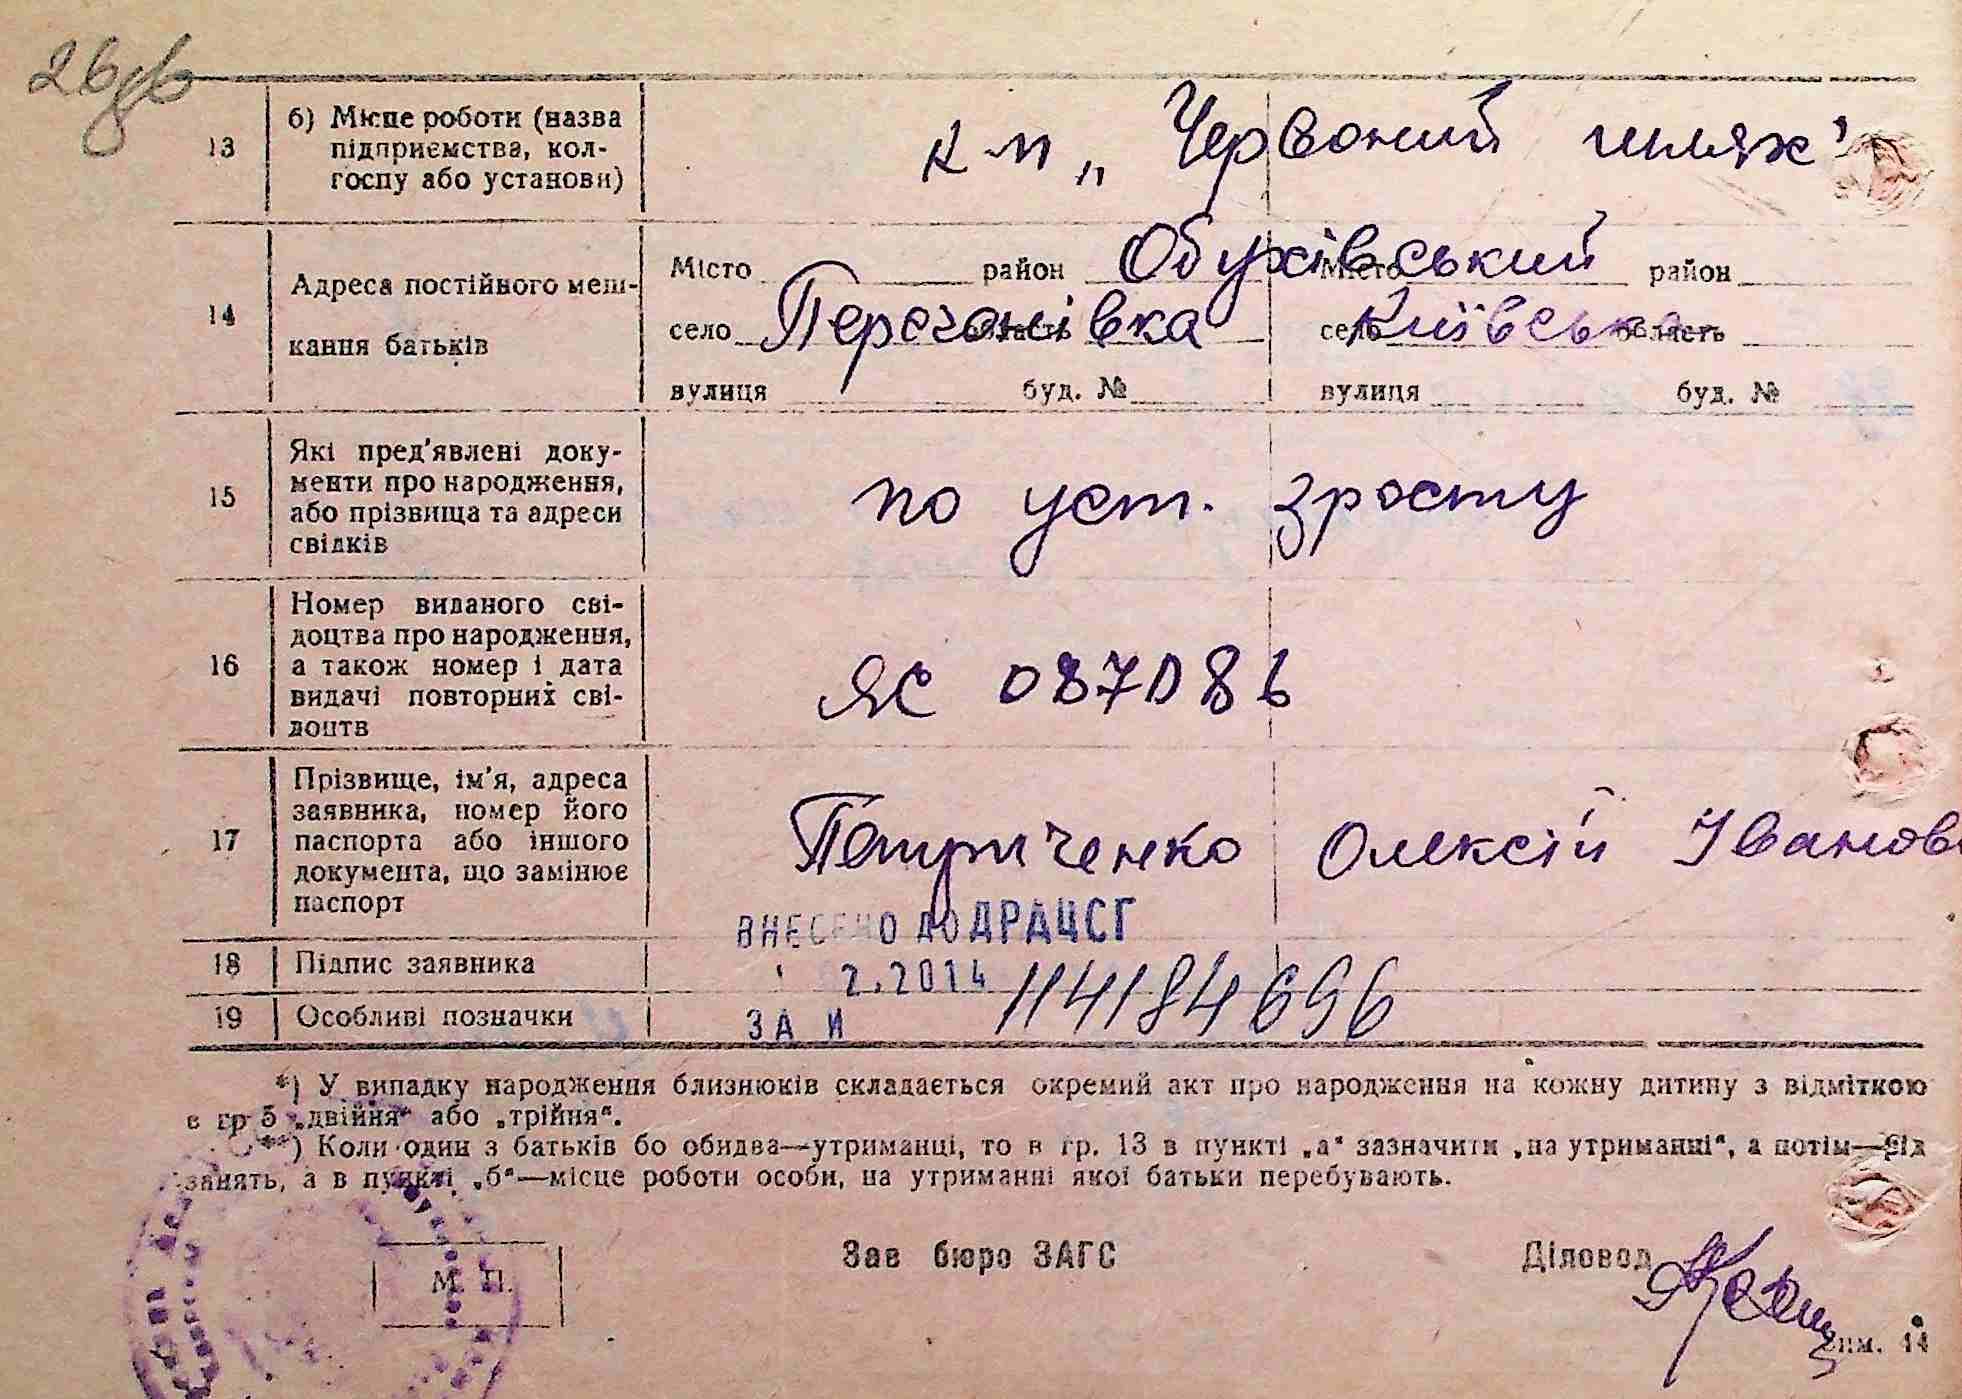 26зв
13 б) Місце роботи (назва
підприємства, кол-
госпу або установи)
к-п „Червоний шлях"
14 Адреса постійного меш-
кання батьків
Місто район Обухівський Місто район
село Перегонівка область село Київська область
вулиця буд. № вулиця буд. №
15 Які пред'явлені доку-
менти про народження,
або прізвища та адреси
свідків
по уст. зросту
16 Номер виданого сві-
доцтва про народження,
а також номер і дата
видачі повторних сві-
доцтв
ЯС 087086
17 Прізвище, ім'я, адреса
заявника, номер його
паспорта або іншого
документа, що замінює
паспорт
Петриченко Олексій Іванов
ВНЕСЕНО ДО ДРАЦСГ
18 Підпис заявника
2.2014 114184696
19 Особливі позначки
ЗА И
*) У випадку народження близнюків складається окремий акт про народження на кожну дитину з відміткою
в гр 5 „двійня" або „трійня".
**) Коли один з батьків бо обидва—утриманці, то в гр. 13 в пункті „а" зазначити „на утриманні", а потім—рід
занять, а в пункті „б"—місце роботи особи, на утриманні якої батьки перебувають.
М. П.
Зав бюро ЗАГС
Діловод
44